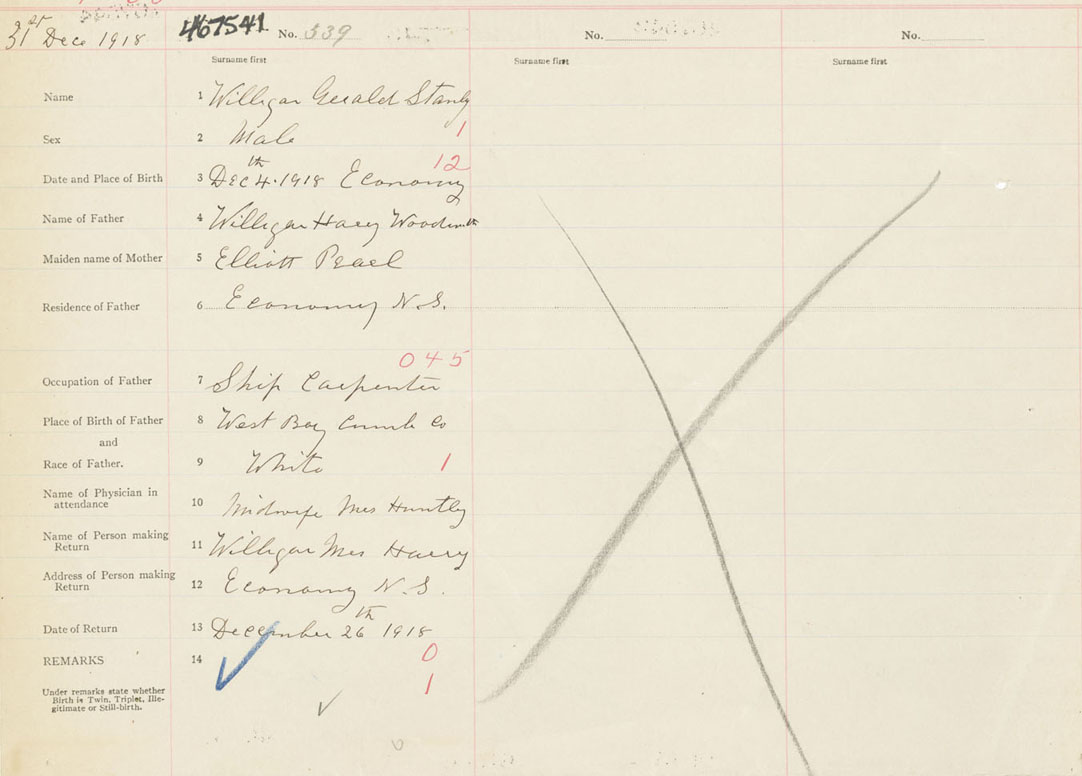 31st Dec 1918 467541 No. 339 No. No.
Surname first Surname first Surname first
Name 1 Willigar Gerald Stanly
1
Sex 2 Male
12
Date and Place of Birth 3 Dec 4th 1918 Economy
Name of Father 4 Willigar Harry
Maiden name of Mother 5 Elliott Pearl
Residence of Father 6 Economy N.S.
045
Occupation of Father 7 Ship Carpenter
Place of Birth of Father 8 West Bay Cumb Co
and
Race of Father. 9 White 1
Name of Physician in
attendance 10 Midwife Mrs Huntly
Name of Person making
Return 11 Willigar Mrs Harry
Address of Person making
Return 12 Economy N.S.
Date of Return 13 December 26th 1918
REMARKS 14 0
1
Under remarks state whether
Birth is Twin, Triplet, Ille-
gitimate or Still-birth.